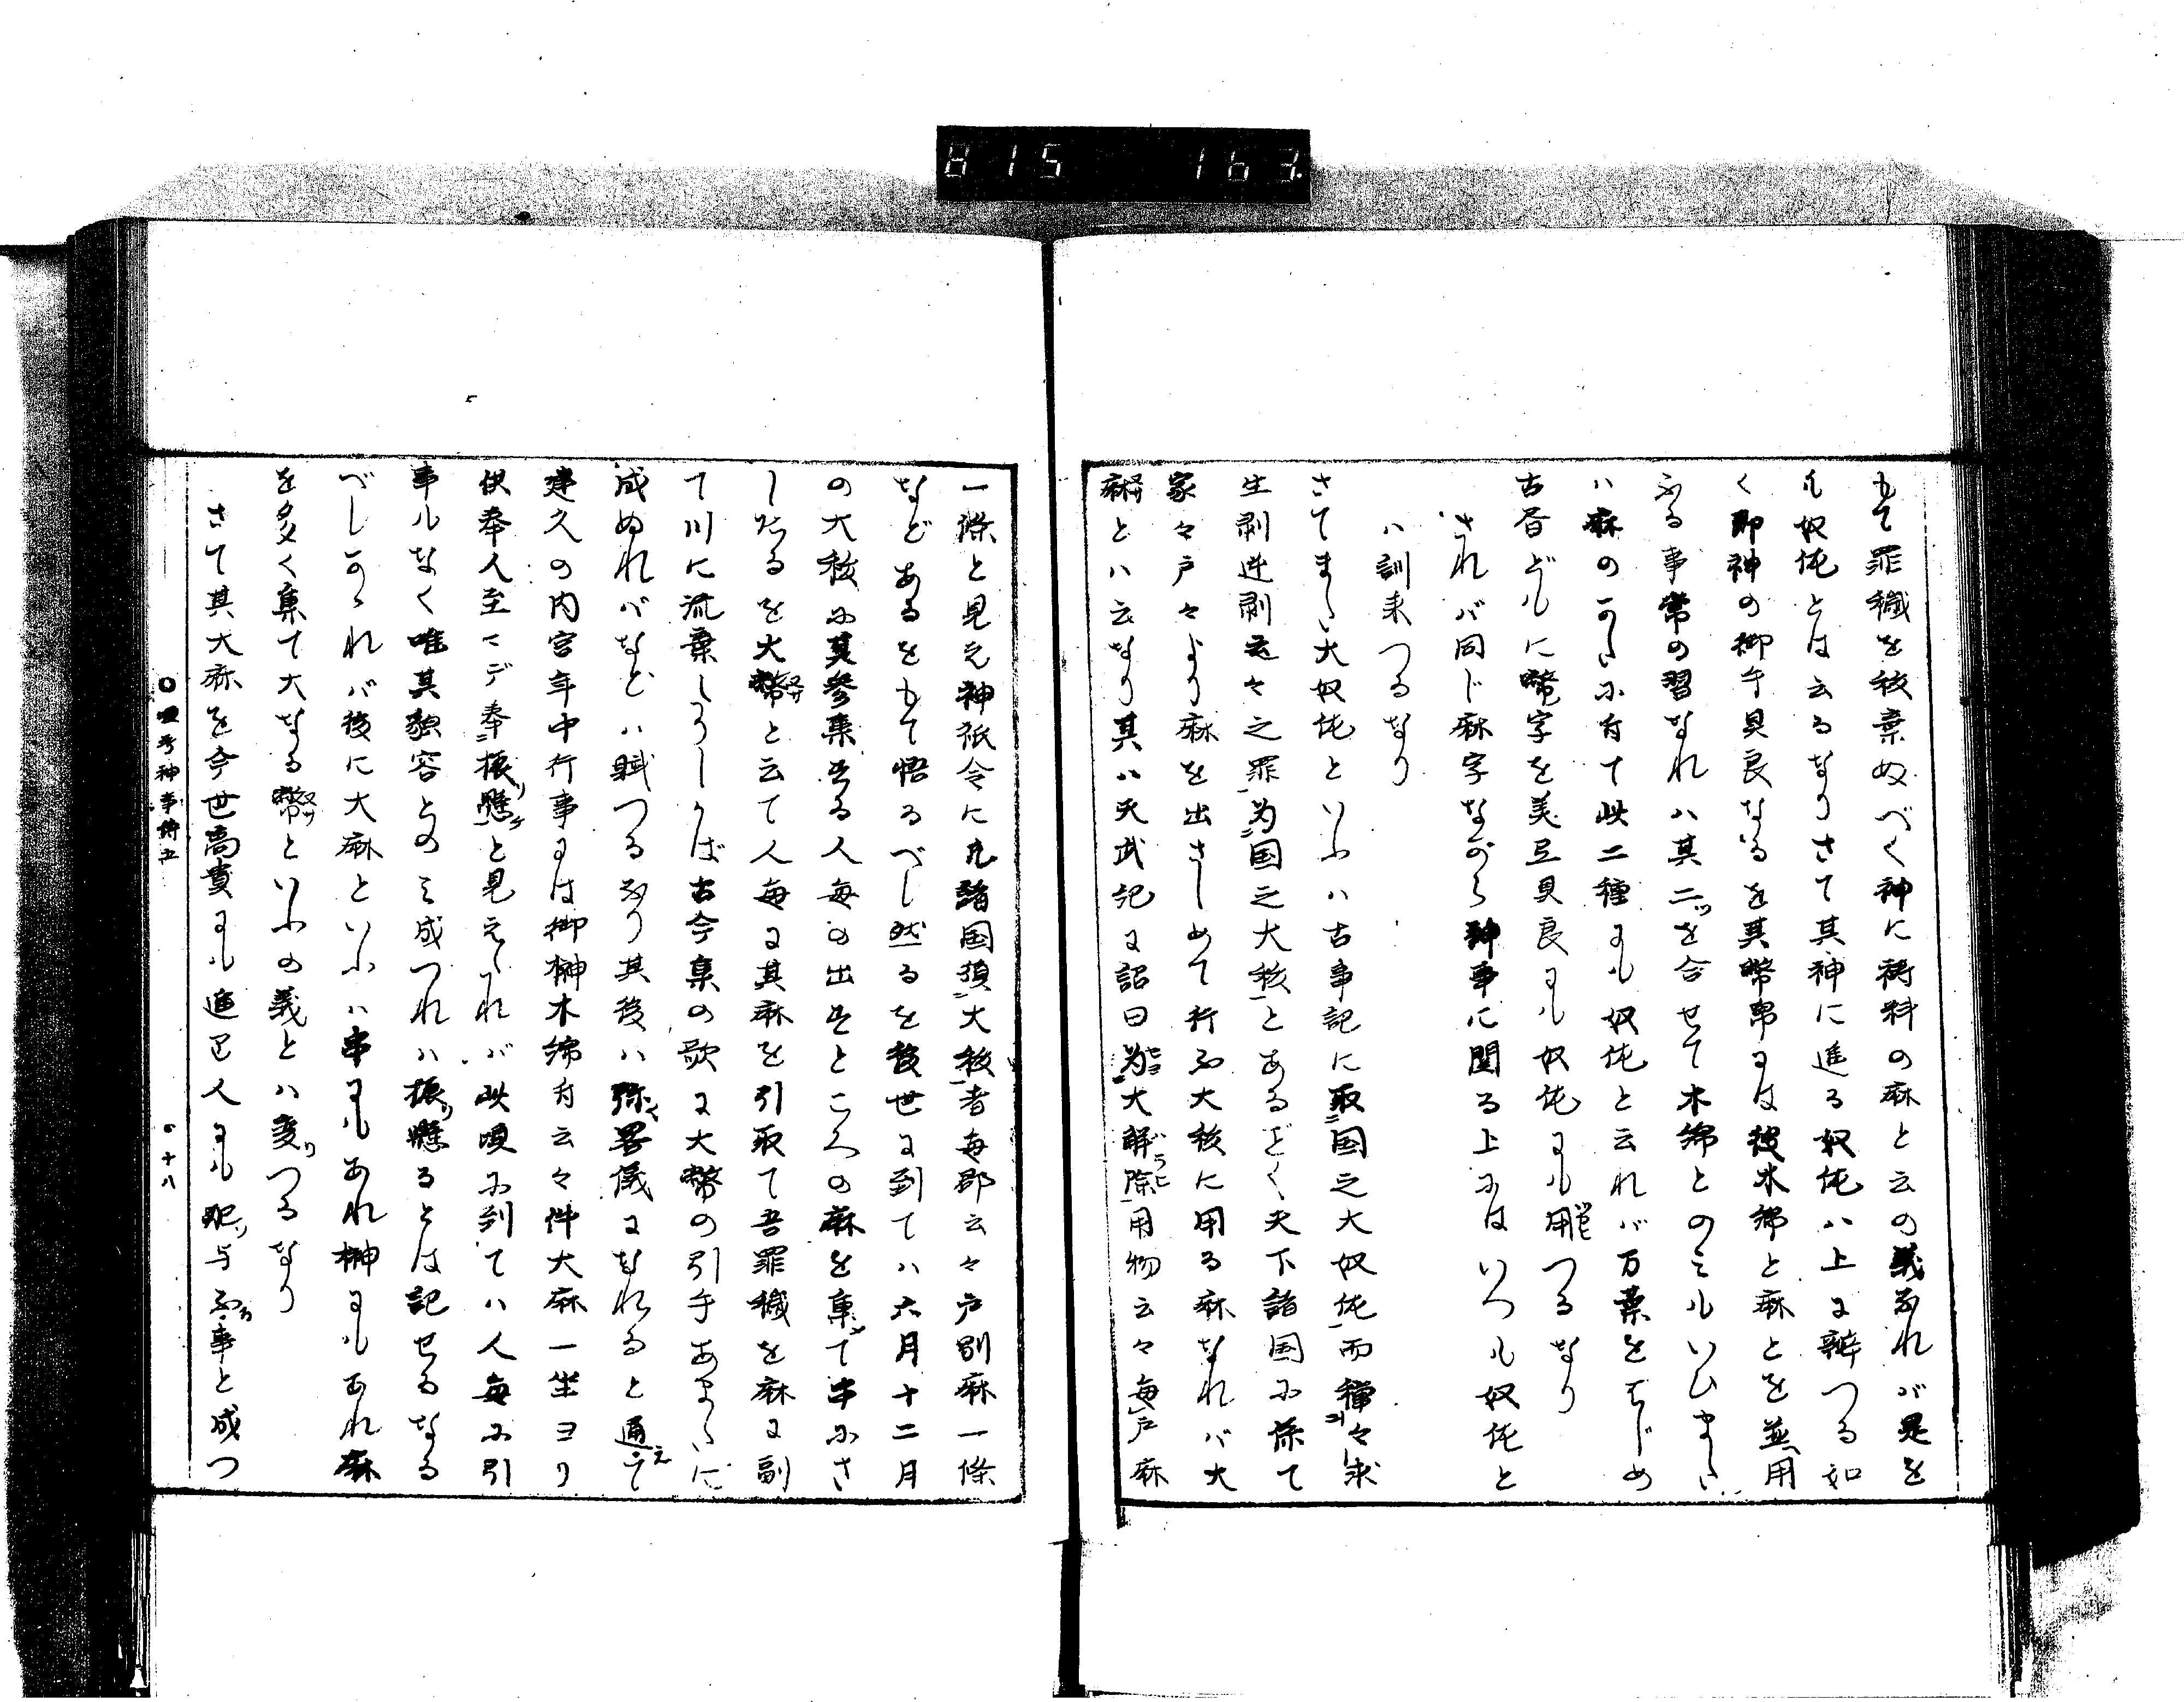 815 163
もて罪穢を祓棄ぬべく神に祷料の麻と云の義なれバ是を
も奴佐とは云るなりさて其神に進る奴佐ハ上に辨つる如
く即神の御手具良なるを其幣帛には彼木綿と麻とを並用
ふる事常の習なれハ其二ツを合せて木綿とのミルいひまた
ハ麻のかたに付て此二種にも奴佐と云れバ万葉をはじめ
古昔どもに幣字を美豆具良にも奴佐にも用つるなり
されバ同じ麻字ながら神事に関る上にはいつも奴佐と
ハ訓来つるなり
さてまた大奴佐といふハ古事記に取国之大奴佐而種々求
生剥逆剥云々之罪為国之大祓とあるごとく天下諸国に係て
家々戸々より麻を出さしめて行ふ大祓に用る麻なれバ大
麻とハ云なり其ハ天武記に詔曰為大解除用物云々毎戸麻
一條と見え神祇令に凡諸国須大祓者毎郡云々戸別麻一條
などあるをもて悟るべし然るを後世に到てハ六月十二月
の大祓に其参集する人毎の出すところの麻を集て串にさ
したるを大幣と云て人毎に其麻を引取て吾罪穢を麻に副
て川に流棄しかば古今集の歌に大幣の引手あまたに
成ぬれバなどハ賦つるなり其後ハ弥略儀になれると通えて
建久の内宮年中行事には御榊木綿付云々件大麻一坐ヨリ
供奉人至マデ奉振懸と見えたれバ此頃に到てハ人毎に引
事ルなく唯其貌容とのミ成つれハ振懸るとは記せるなる
べしかゝれバ後に大麻といふハ串にもあれ榊にもあれ麻
を多く集て大なる幣といふの義とハ変つるなり
さて其大麻を今世高貴にも進上人にも配与ふ事と成つ
神事傳五
十八